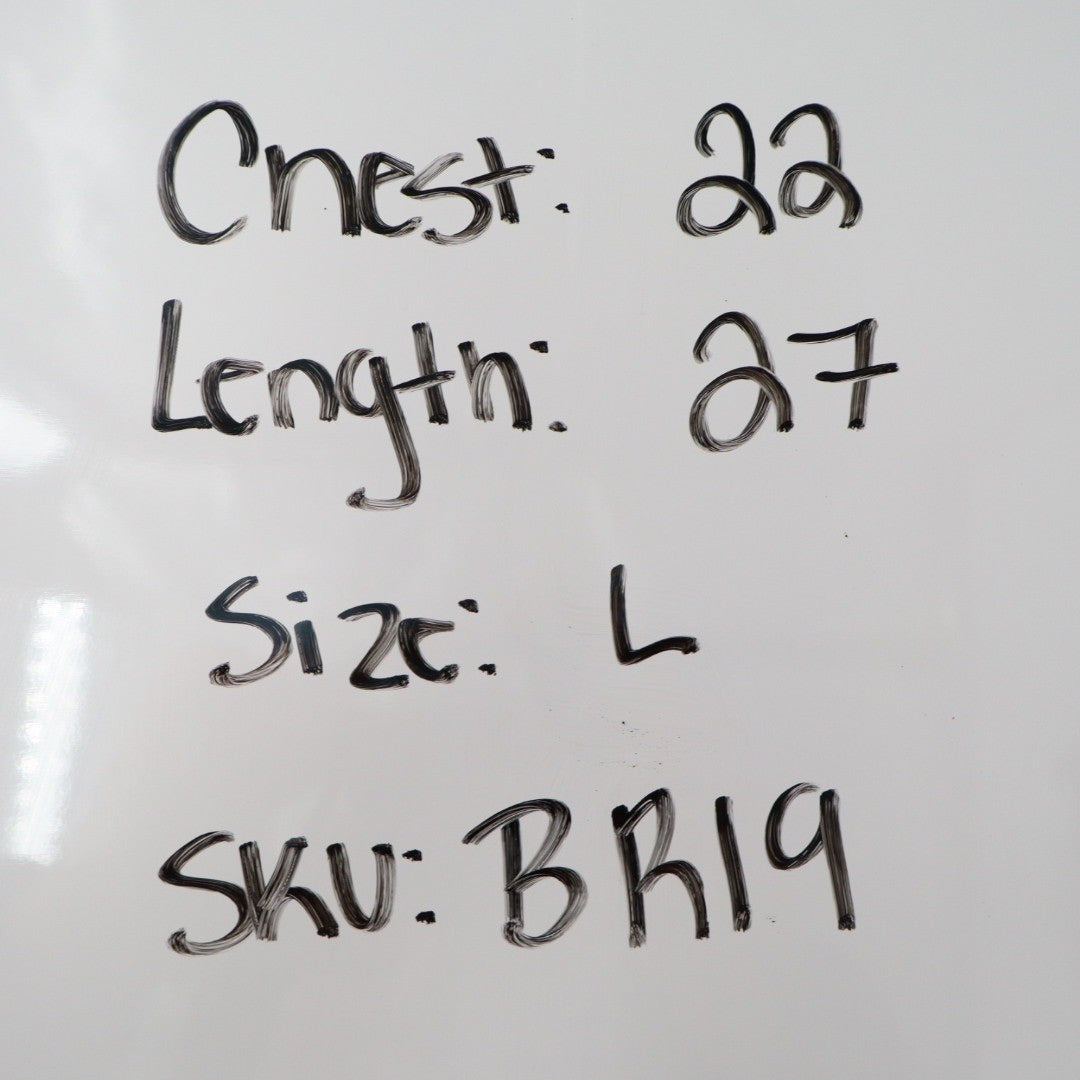 Chest: 22
Length: 27
Size: L
SKU: BR19